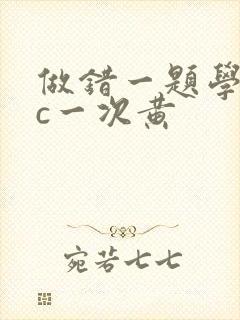 做錯一題學
c一次黄
宛若七七